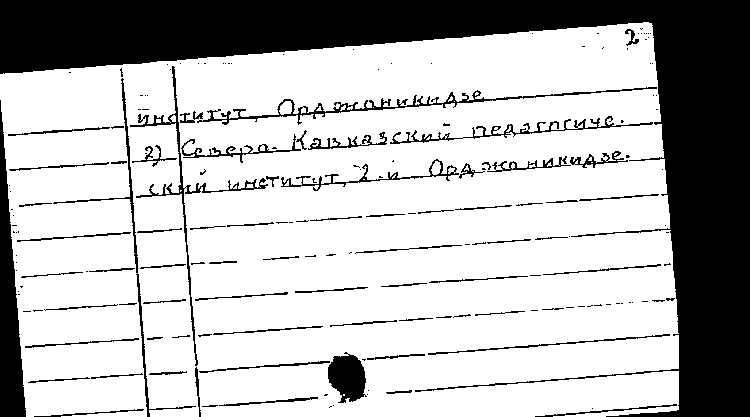 2
институт, Орджоникидзе
2) Северо-Кавказский педагогиче-
ский институт, 2-й Орджоникидзе.